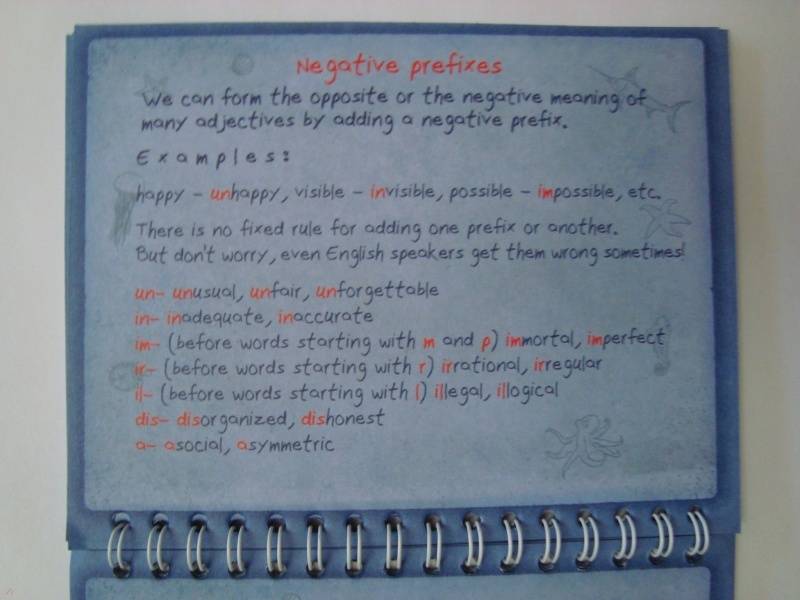 Negative prefixes
We can form the opposite or the negative meaning of
many adjectives by adding a negative prefix.
Examples:
happy - unhappy, visible - invisible, possible - impossible, etc.
There is no fixed rule for adding one prefix or another.
But don't worry, even English speakers get them wrong sometimes!
un- unusual, unfair, unforgettable
in- inadequate, inaccurate
im- (before words starting with m and p) immortal, imperfect
ir- (before words starting with r) irrational, irregular
il- (before words starting with l) illegal, illogical
dis- disorganized, dishonest
a- asocial, asymmetric